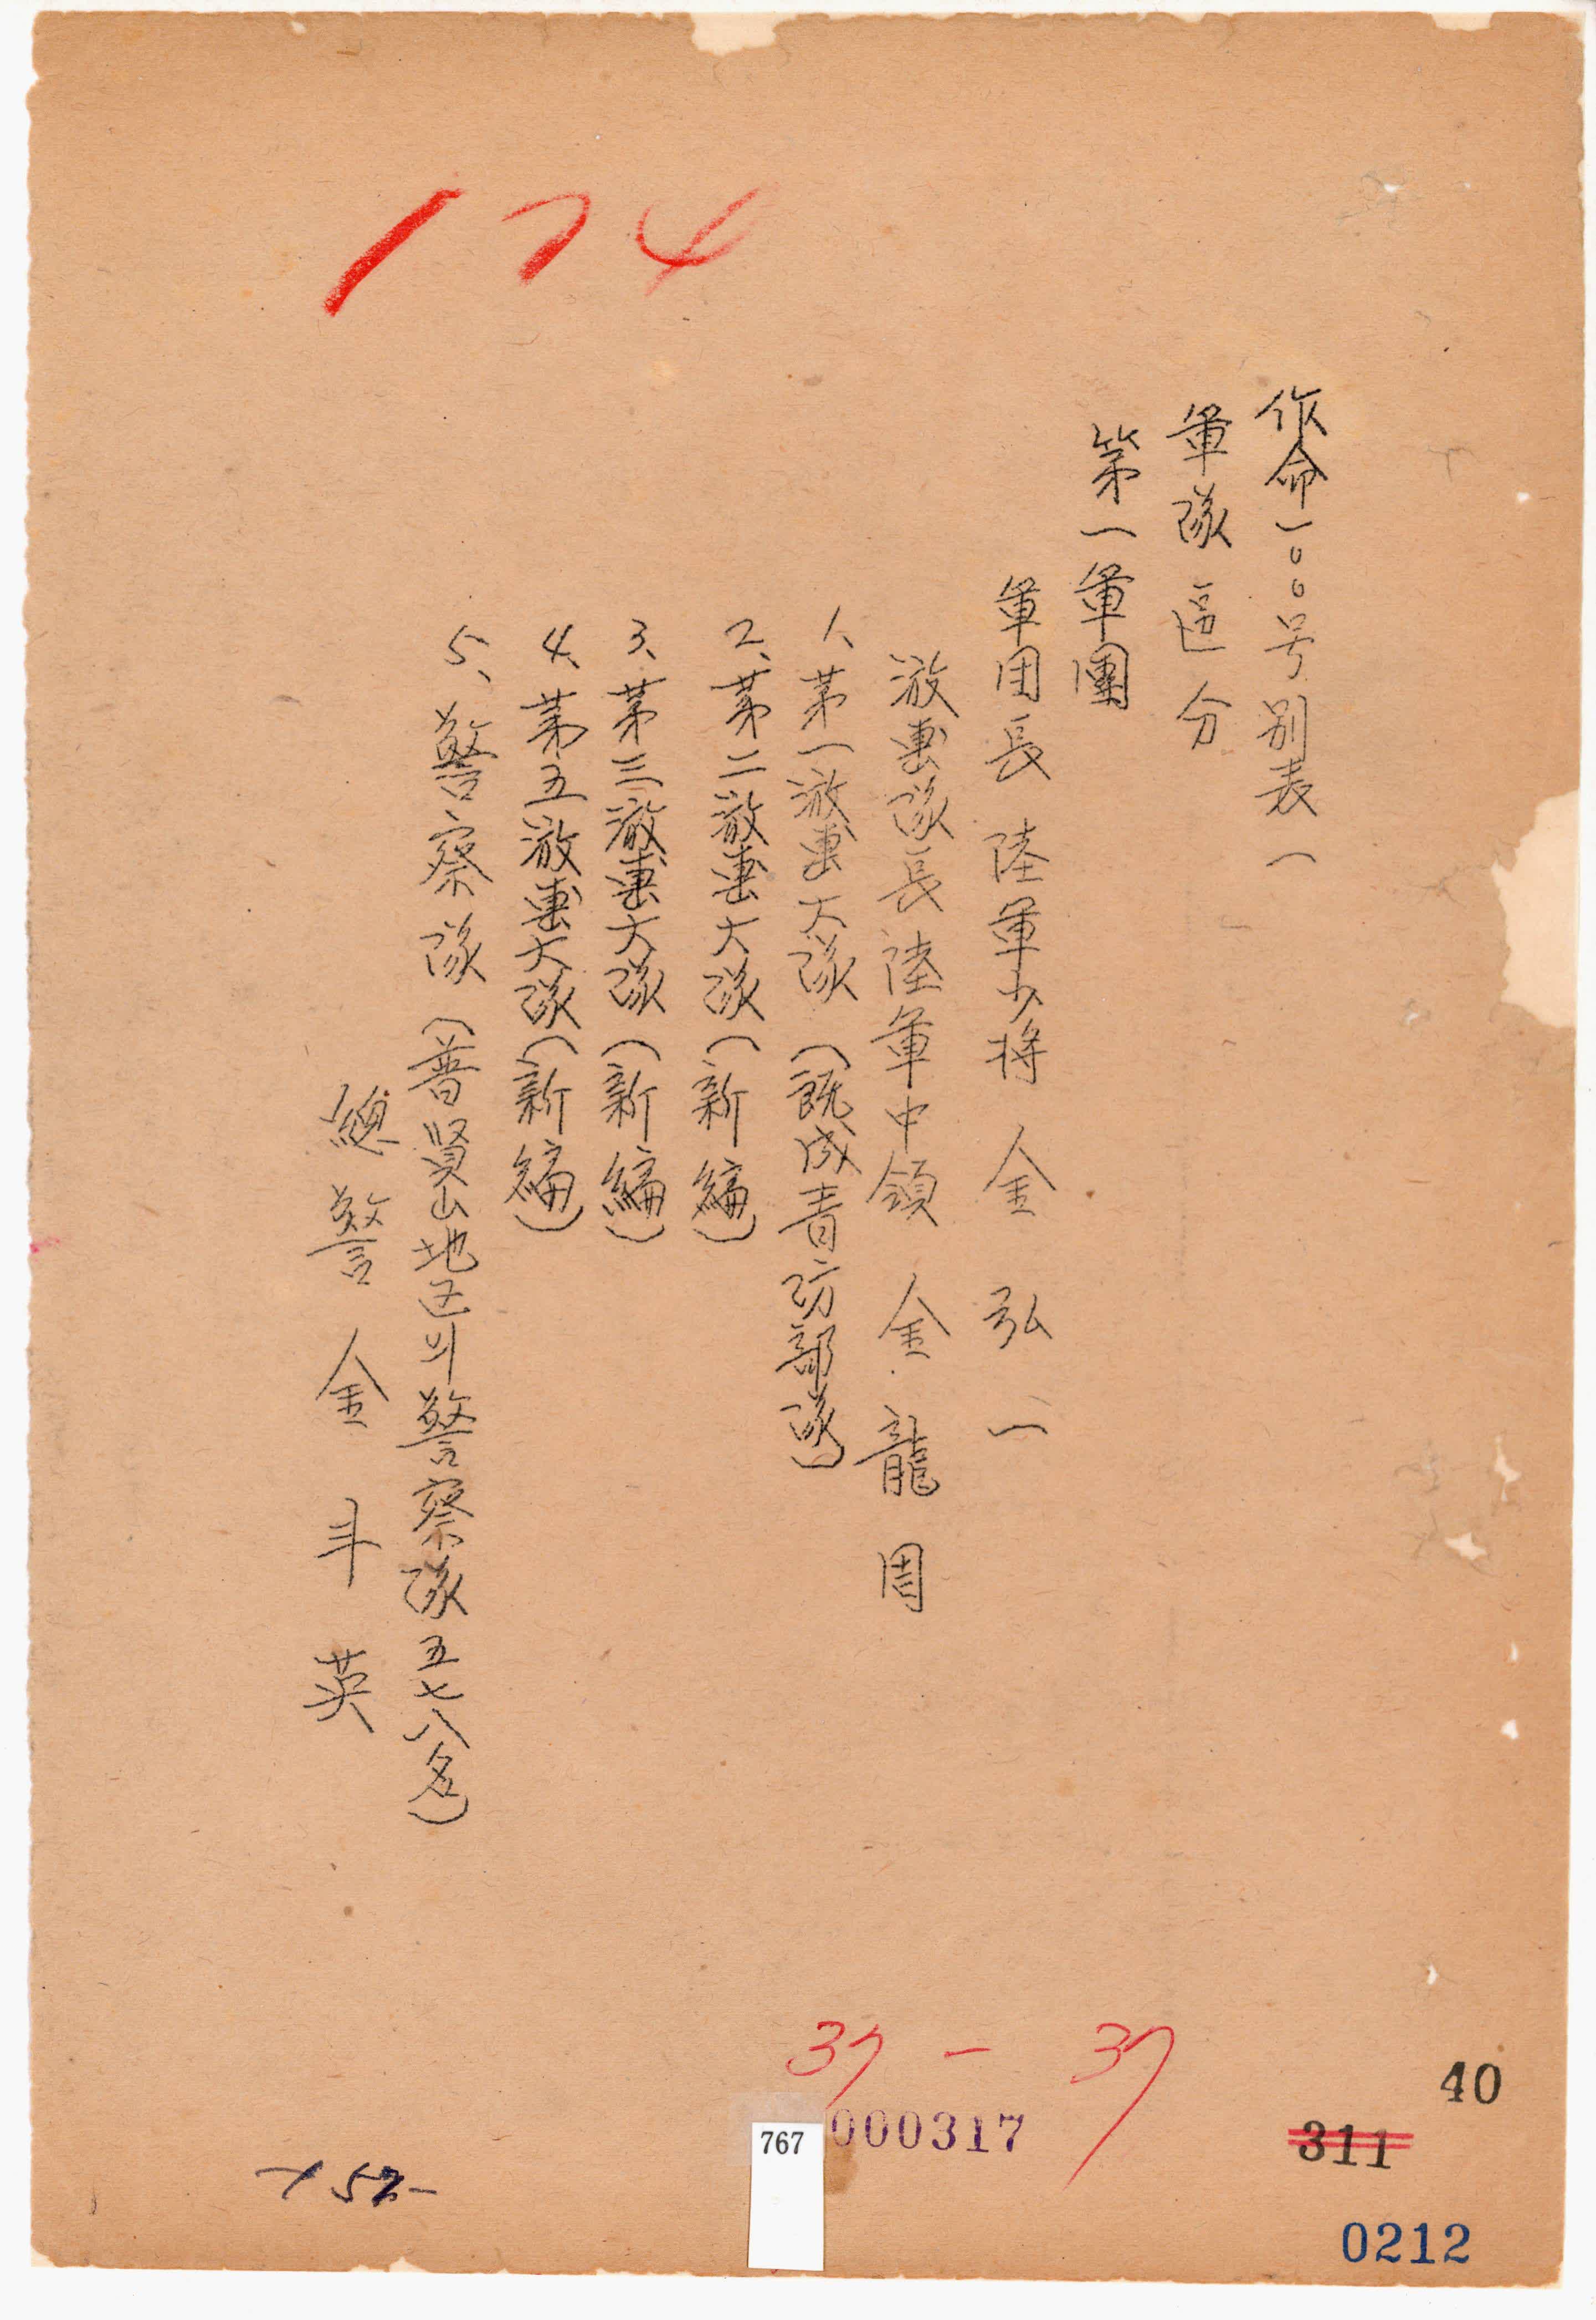 174
作命一〇〇号別表一
軍隊區分
第一軍團
軍団長 陸軍少将 金弘一
游擊隊長 陸軍中領 金龍周
1、第一游擊大隊(既成青防部隊)
2、第二游擊大隊(新編)
3、第三游擊大隊(新編)
4、第五游擊大隊(新編)
5、警察隊(普賢山地区의警察隊五七八名)
總警 金斗英
37 - 37
40
000317
767
311
-152-
0212